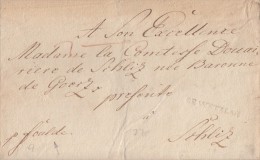 A Son Excellence
Madame la Comtesse Douai
riere de Schliz née Baronne
de Goerz
présente
p. Fulde.
Schliz